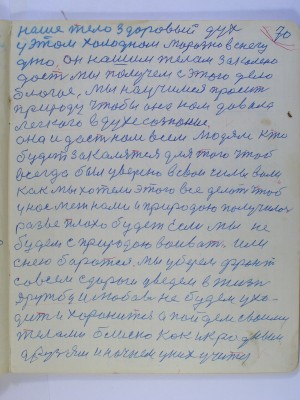 наше тело здоровый дух 70
у этом холодном морозном снегу
он нашим телам закалено
даст мы получем с этого дело
благое, мы научимся просит
природу чтобы она нам давала
легкого в духе сознание
она и даст нам всем людям кто
будет закалятся для того чтоб
всегда был уверено в свои силы вам
как мы хотели этого все делат чтоб
у нас меж нами и природою получилос
разве плохо будет если мы не
будем с природою воеват или
снею баротся мы уберем фронт
совсем с дороги введем в жизн
дружбу и любов не будем ухо-
дит и хоронится а пойдем своими
телами близко как и к родным
друзям и начнем у них учится